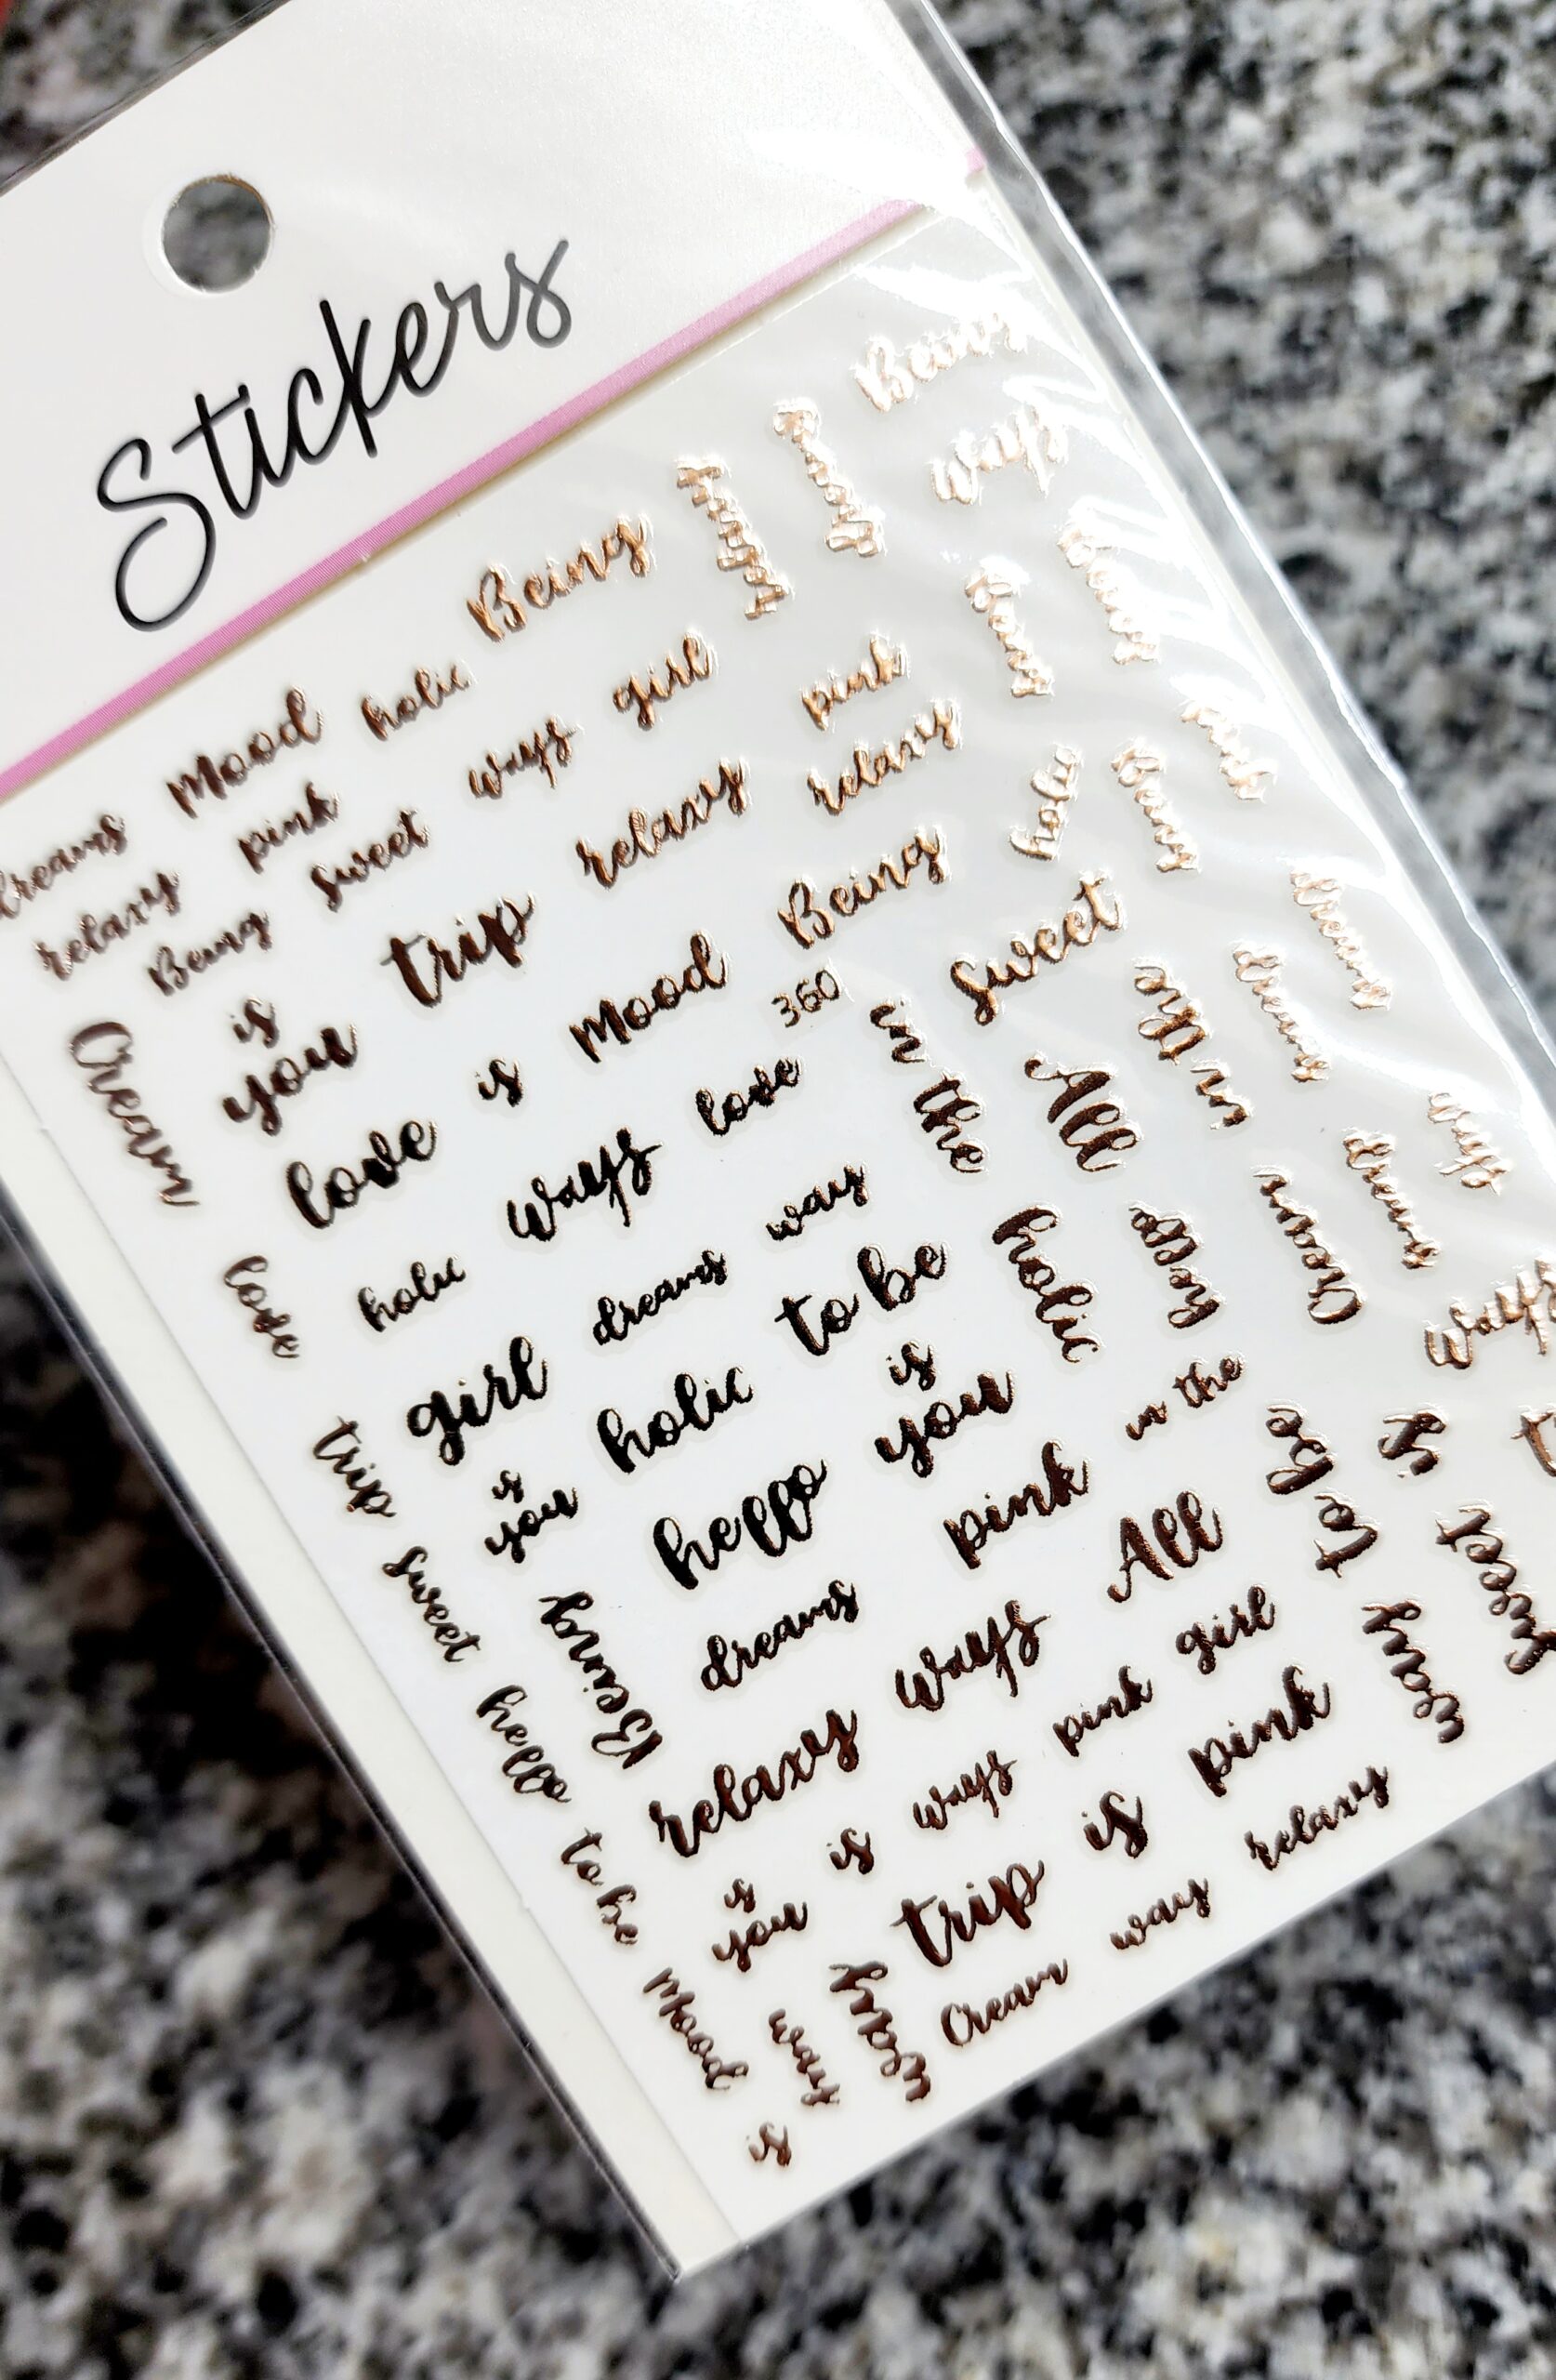 Stickers
Being
ways
Being
Mood
holic
girl
pink
dreams
pink
ways
relaxy
relaxy
sweet
relaxy
Being
trip
Being
holic
Being
is
you
Mood
360
sweet
Dream
love
is
love
in the
All
in the
ways
holic
dreams
way
love
girl
holic
to be
holic
hello
Dream
Ways
is
you
hello
is
you
in the
trip
pink
to be
is
sweet
Being
dreams
All
sweet
hello
relaxy
ways
girl
way
is
you
is
ways
pink
pink
to be
trip
is
relaxy
Mood
way
way
Dream
way
is